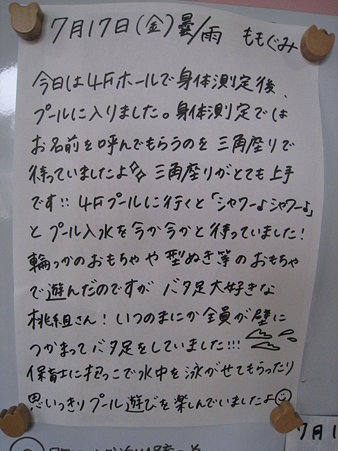 7月17日(金)曇/雨 ももぐみ
今日は4Fホールで身体測定後、
プールに入りました。身体測定では
お名前を呼んでもらうのを三角座りで
待っていましたよ 三角座りがとても上手
です!! 4Fプールに行くと「シャワー♪シャワー♪」
とプール入水を今か今かと待っていました!
輪っかのおもちゃや型ぬき等のおもちゃ
で遊んだのですがバタ足大好きな
桃組さん!いつのまにか全員が壁に
つかまってバタ足をしていました!!!
保育士に抱っこで水中を泳がせてもらったり
思いっきりプール遊びを楽しんでいましたよ☺
7月1